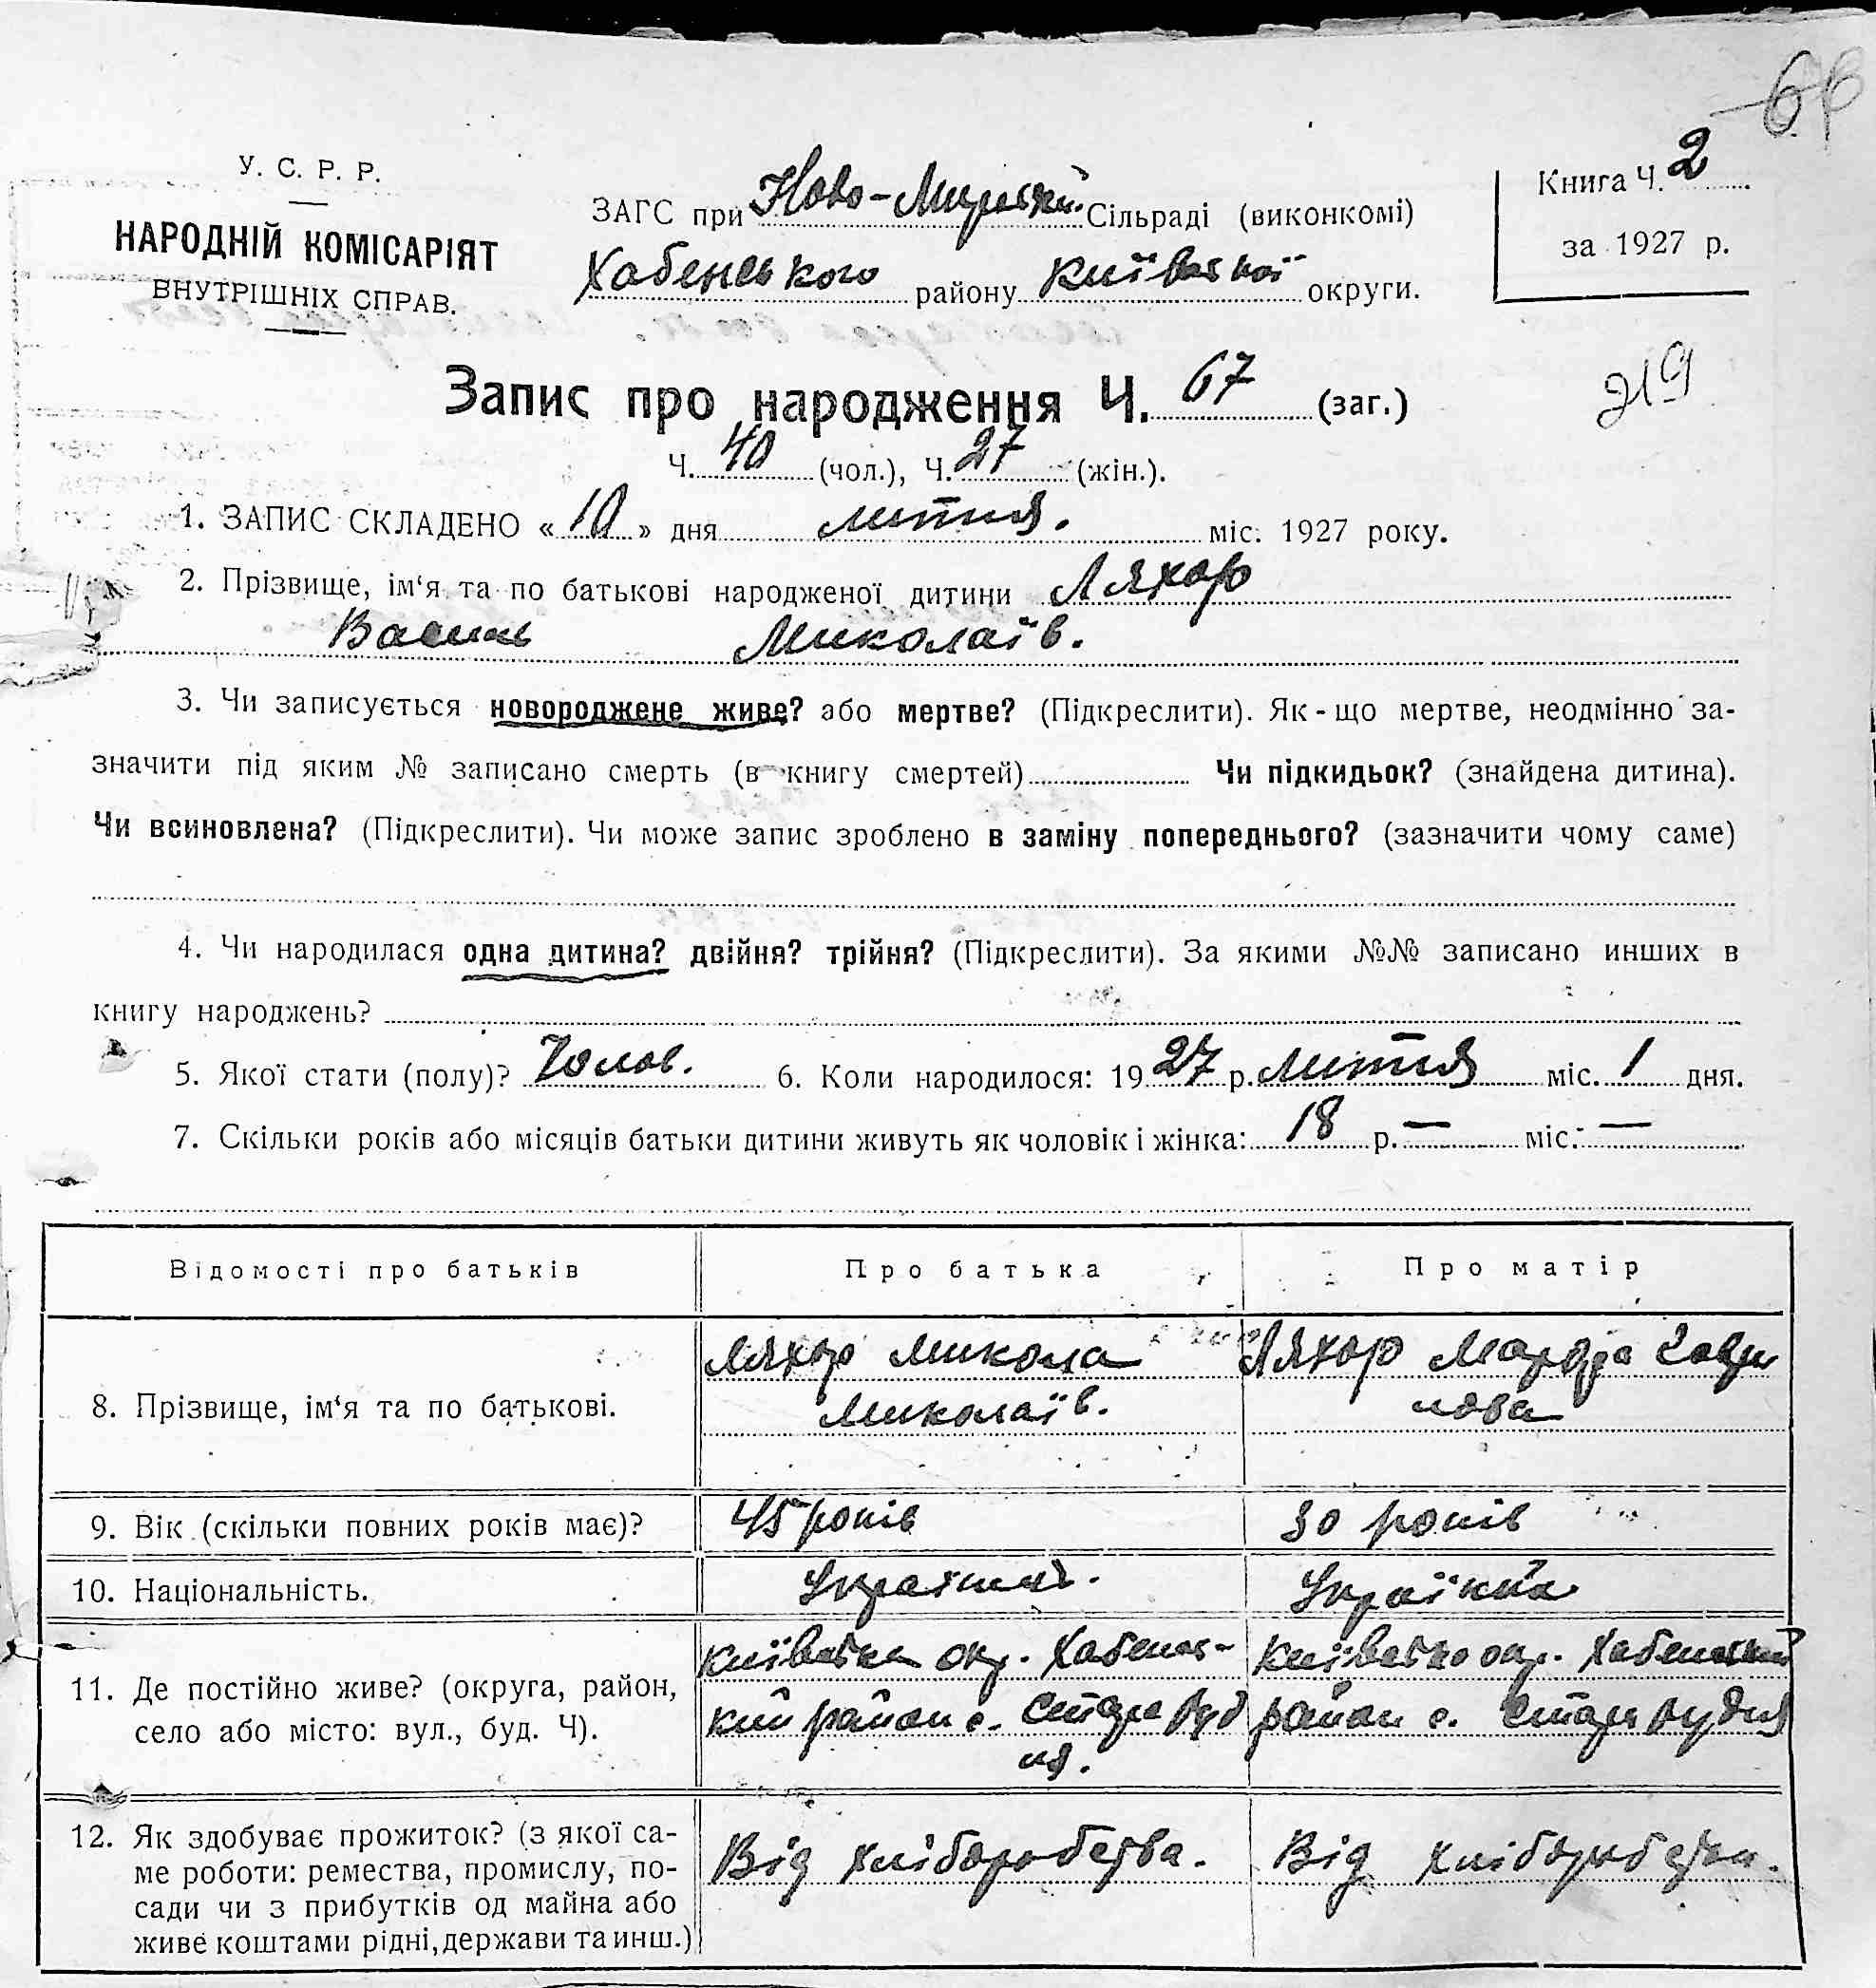 66
У. С. Р. Р.
НАРОДНІЙ КОМІСАРІЯТ
ВНУТРІШНІХ СПРАВ.
ЗАГС при Ново-Мирській Сільраді (виконкомі)
Хабенського району Київської округи.
Книга Ч. 2
за 1927 р.
Запис про народження Ч. 67 (заг.)
219
Ч. 40 (чол.), Ч. 27 (жін.).
1. ЗАПИС СКЛАДЕНО «10» дня липня. міс. 1927 року.
2. Прізвище, ім‘я та по батькові народженої дитини Ляхор
Василь Миколаїв.
3. Чи записується новороджене живе? або мертве? (Підкреслити). Як-що мертве, неодмінно за-
значити під яким № записано смерть (в книгу смертей) Чи підкидьок? (знайдена дитина).
Чи всиновлена? (Підкреслити). Чи може запис зроблено в заміну попереднього? (зазначити чому саме)
4. Чи народилася одна дитина? двійня? трійня? (Підкреслити). За якими №№ записано инших в
книгу народжень?
5. Якої стати (полу)? Чолов. 6. Коли народилося: 1927 р. липня міс. 1 дня.
7. Скільки років або місяців батьки дитини живуть як чоловік і жінка: 18 р. — міс. —
Відомості про батьків Про батька Про матір
8. Прізвище, ім‘я та по батькові.
Ляхор Микола
Миколаїв.
Ляхор Гаври
лова
9. Вік (скільки повних років має)? 45 років 30 років
10. Національність. Українець. Українка
11. Де постійно живе? (округа, район,
село або місто: вул., буд. Ч).
Київська окр. Хабенсь-
кий район с. Стара Руд
ня.
Київська окр. Хабенський
район с. Стара Рудня
12. Як здобуває прожиток? (з якої са-
ме роботи: ремества, промислу, по-
сади чи з прибутків од майна або
живе коштами рідні, держави та инш.)
Від хліборобства.
Від хліборобства.